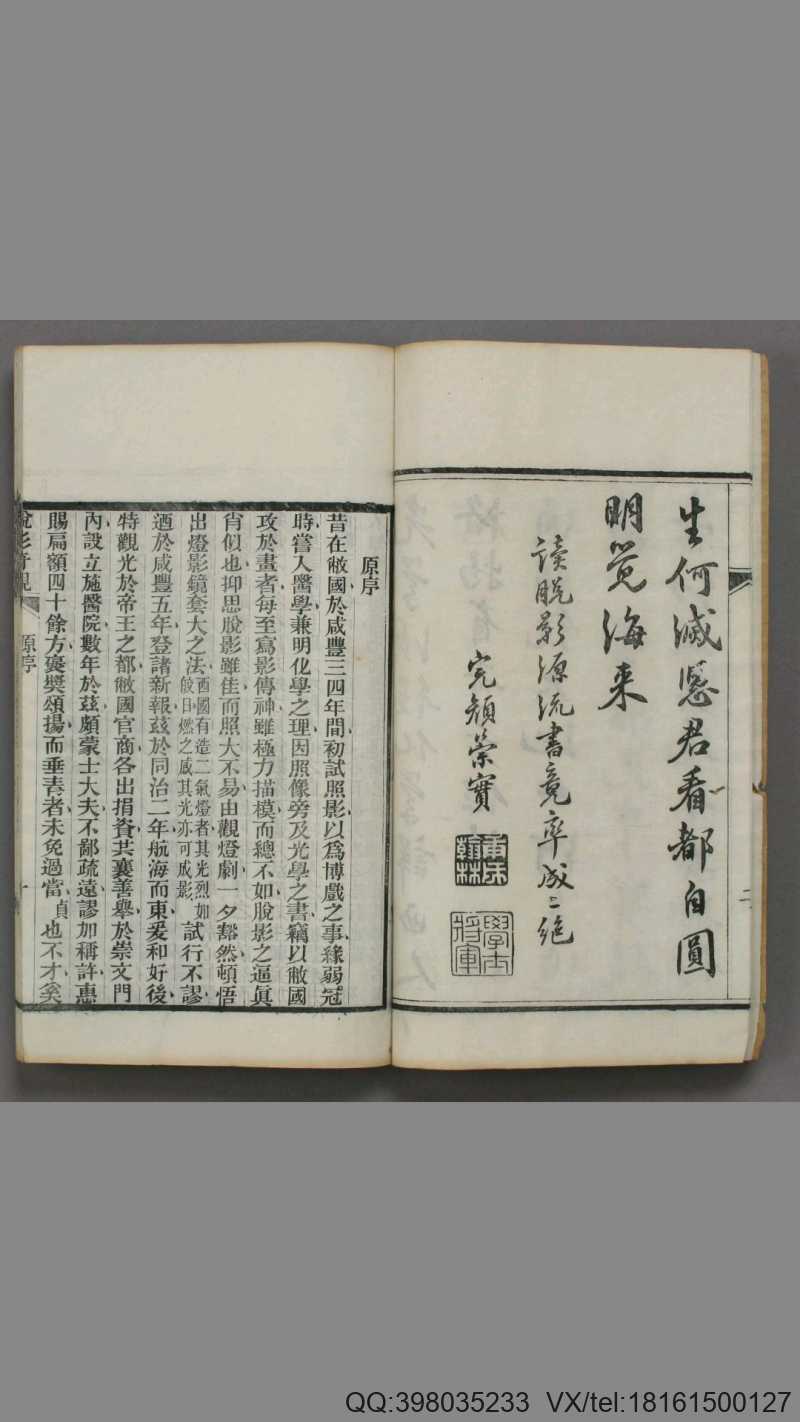 生何減恩君看都自圓
明覺海来
读脱影源流書竟率成二绝
完顏崇實
學士
將軍
二
原序
昔在敝國於咸豐三四年間初試照影以爲博戲之事緣弱冠
時嘗入醫學兼明化學之理因照像旁及光學之書竊以敝國
攻於畫者每至寫影傳神雖極力描模而總不如脫影之逼眞
肖似也抑思脫影雖佳而照大不易由觀燈劇一夕豁然頓悟
出燈影鏡套大之法酉國有造二氣燈者其光烈如皎日燃之感其光亦可成影試行不謬
迺於咸豐五年登諸新報茲於同治二年航海而東爰和好後
特觀光於帝王之都敝國官商各出捐貲共襄善舉於崇文門
內設立施醫院數年於茲頗蒙士大夫不鄙疏遠謬加稱許惠
賜扁額四十餘方褒獎頌揚而垂靑者未免過當㥀也不才奚
脫影奇觀 原序 一
QQ:398035233 VX/tel:18161500127